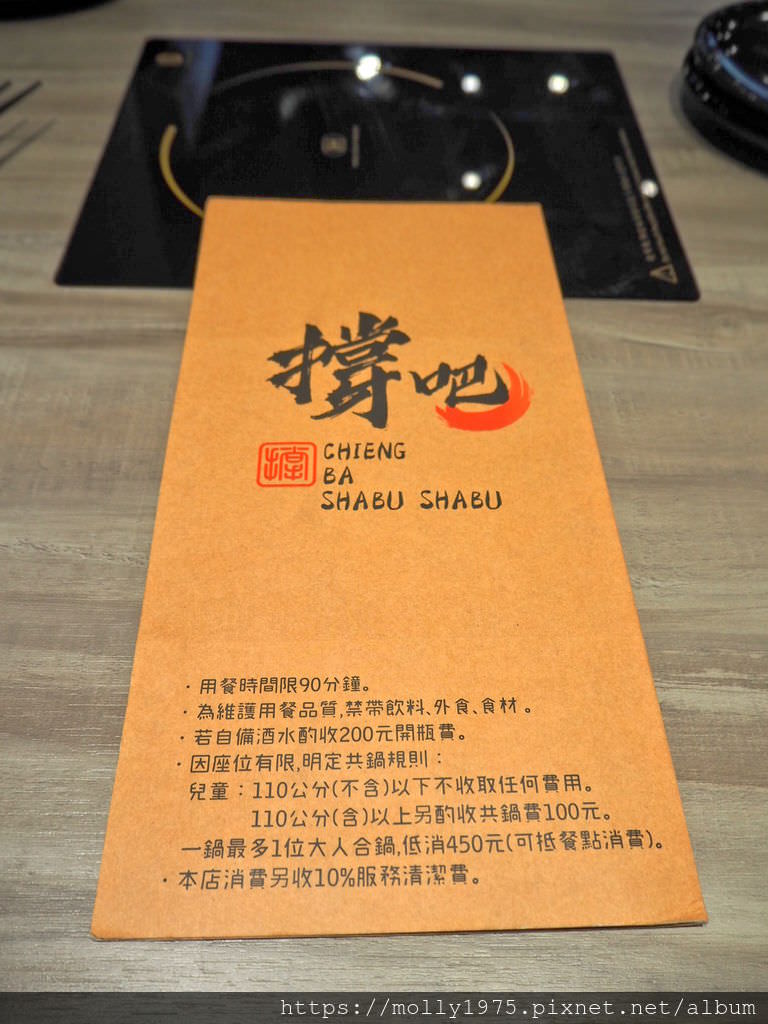 撐吧
CHIENG
BA
SHABU SHABU
・用餐時間限90分鐘。
・為維護用餐品質,禁帶飲料、外食、食材。
・若自備酒水酌收200元開瓶費。
・因座位有限,明定共鍋規則：
兒童：110公分(不含)以下不收取任何費用。
110公分(含)以上另酌收共鍋費100元。
一鍋最多1位大人合鍋,低消450元(可抵餐點消費)。
・本店消費另收10%服務清潔費。
https://molly1975.pixnet.net/album